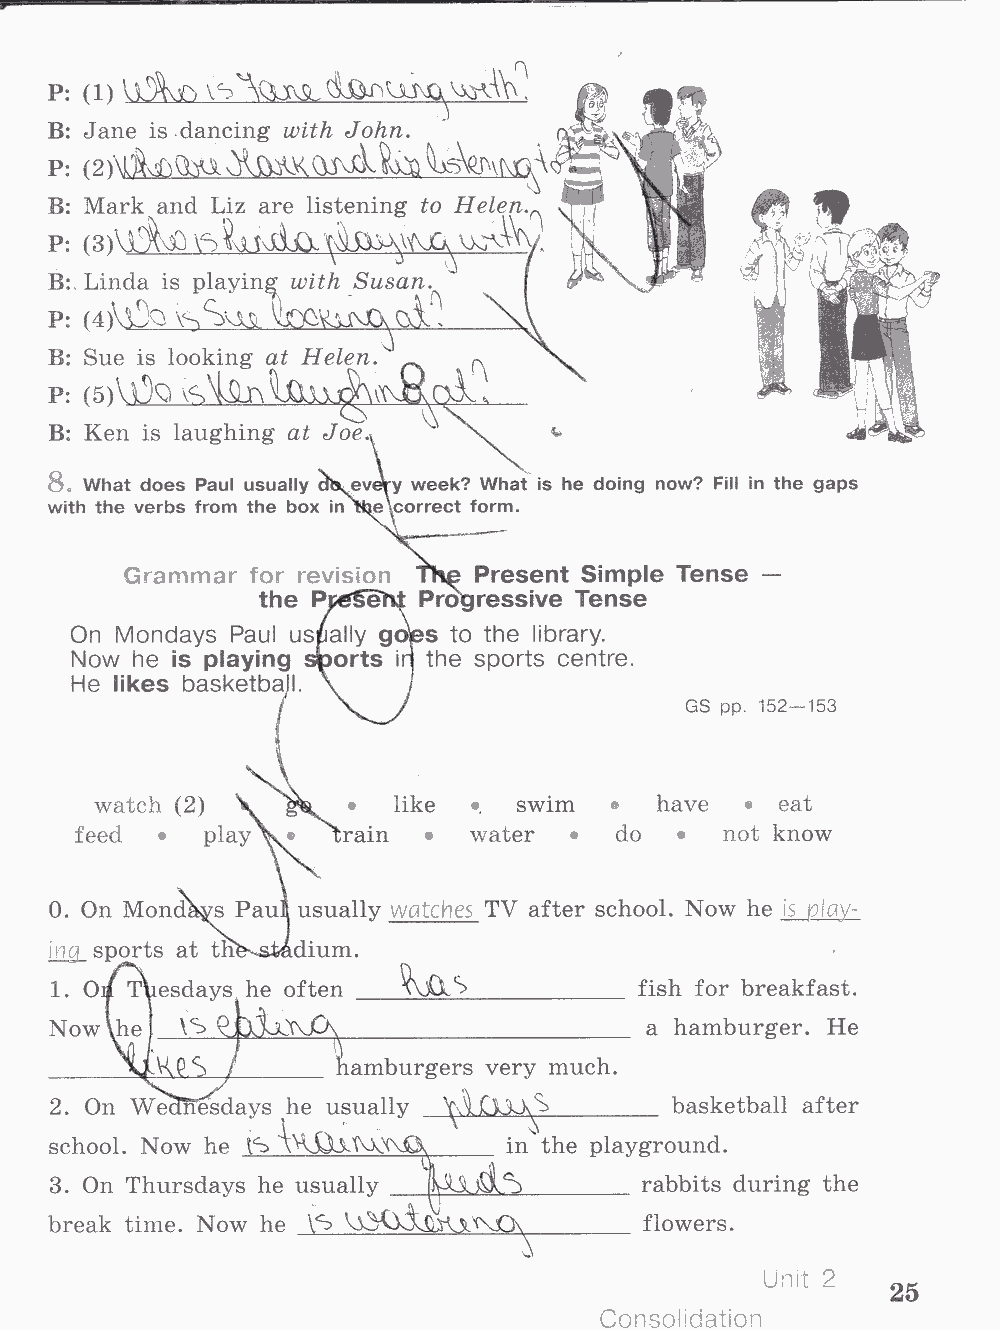 P: (1) Who is Jane dancing with?
B: Jane is dancing with John.
P: (2) Who are Mark and Liz listening to?
B: Mark and Liz are listening to Helen.
P: (3) Who is Linda playing with?
B: Linda is playing with Susan.
P: (4) Wo is Sue looking at?
B: Sue is looking at Helen.
P: (5) Wo is Ken laughing at?
B: Ken is laughing at Joe.
8. What does Paul usually do every week? What is he doing now? Fill in the gaps
with the verbs from the box in the correct form.
Grammar for revision The Present Simple Tense —
the Present Progressive Tense
On Mondays Paul usually goes to the library.
Now he is playing sports in the sports centre.
He likes basketball.
GS pp. 152—153
watch (2) • go • like • swim • have • eat
feed • play • train • water • do • not know
0. On Mondays Paul usually watches TV after school. Now he is play-
ing sports at the stadium.
1. On Tuesdays he often has fish for breakfast.
Now he is eating a hamburger. He
likes hamburgers very much.
2. On Wednesdays he usually plays basketball after
school. Now he is training in the playground.
3. On Thursdays he usually feeds rabbits during the
break time. Now he is watering flowers.
Unit 2
25
Consolidation